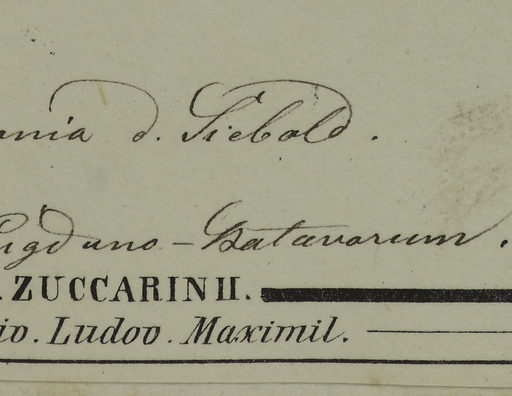 d. Siebold.
Lugduno-Batavorum.
. ZUCCARINII.
Ludov. Maximil.